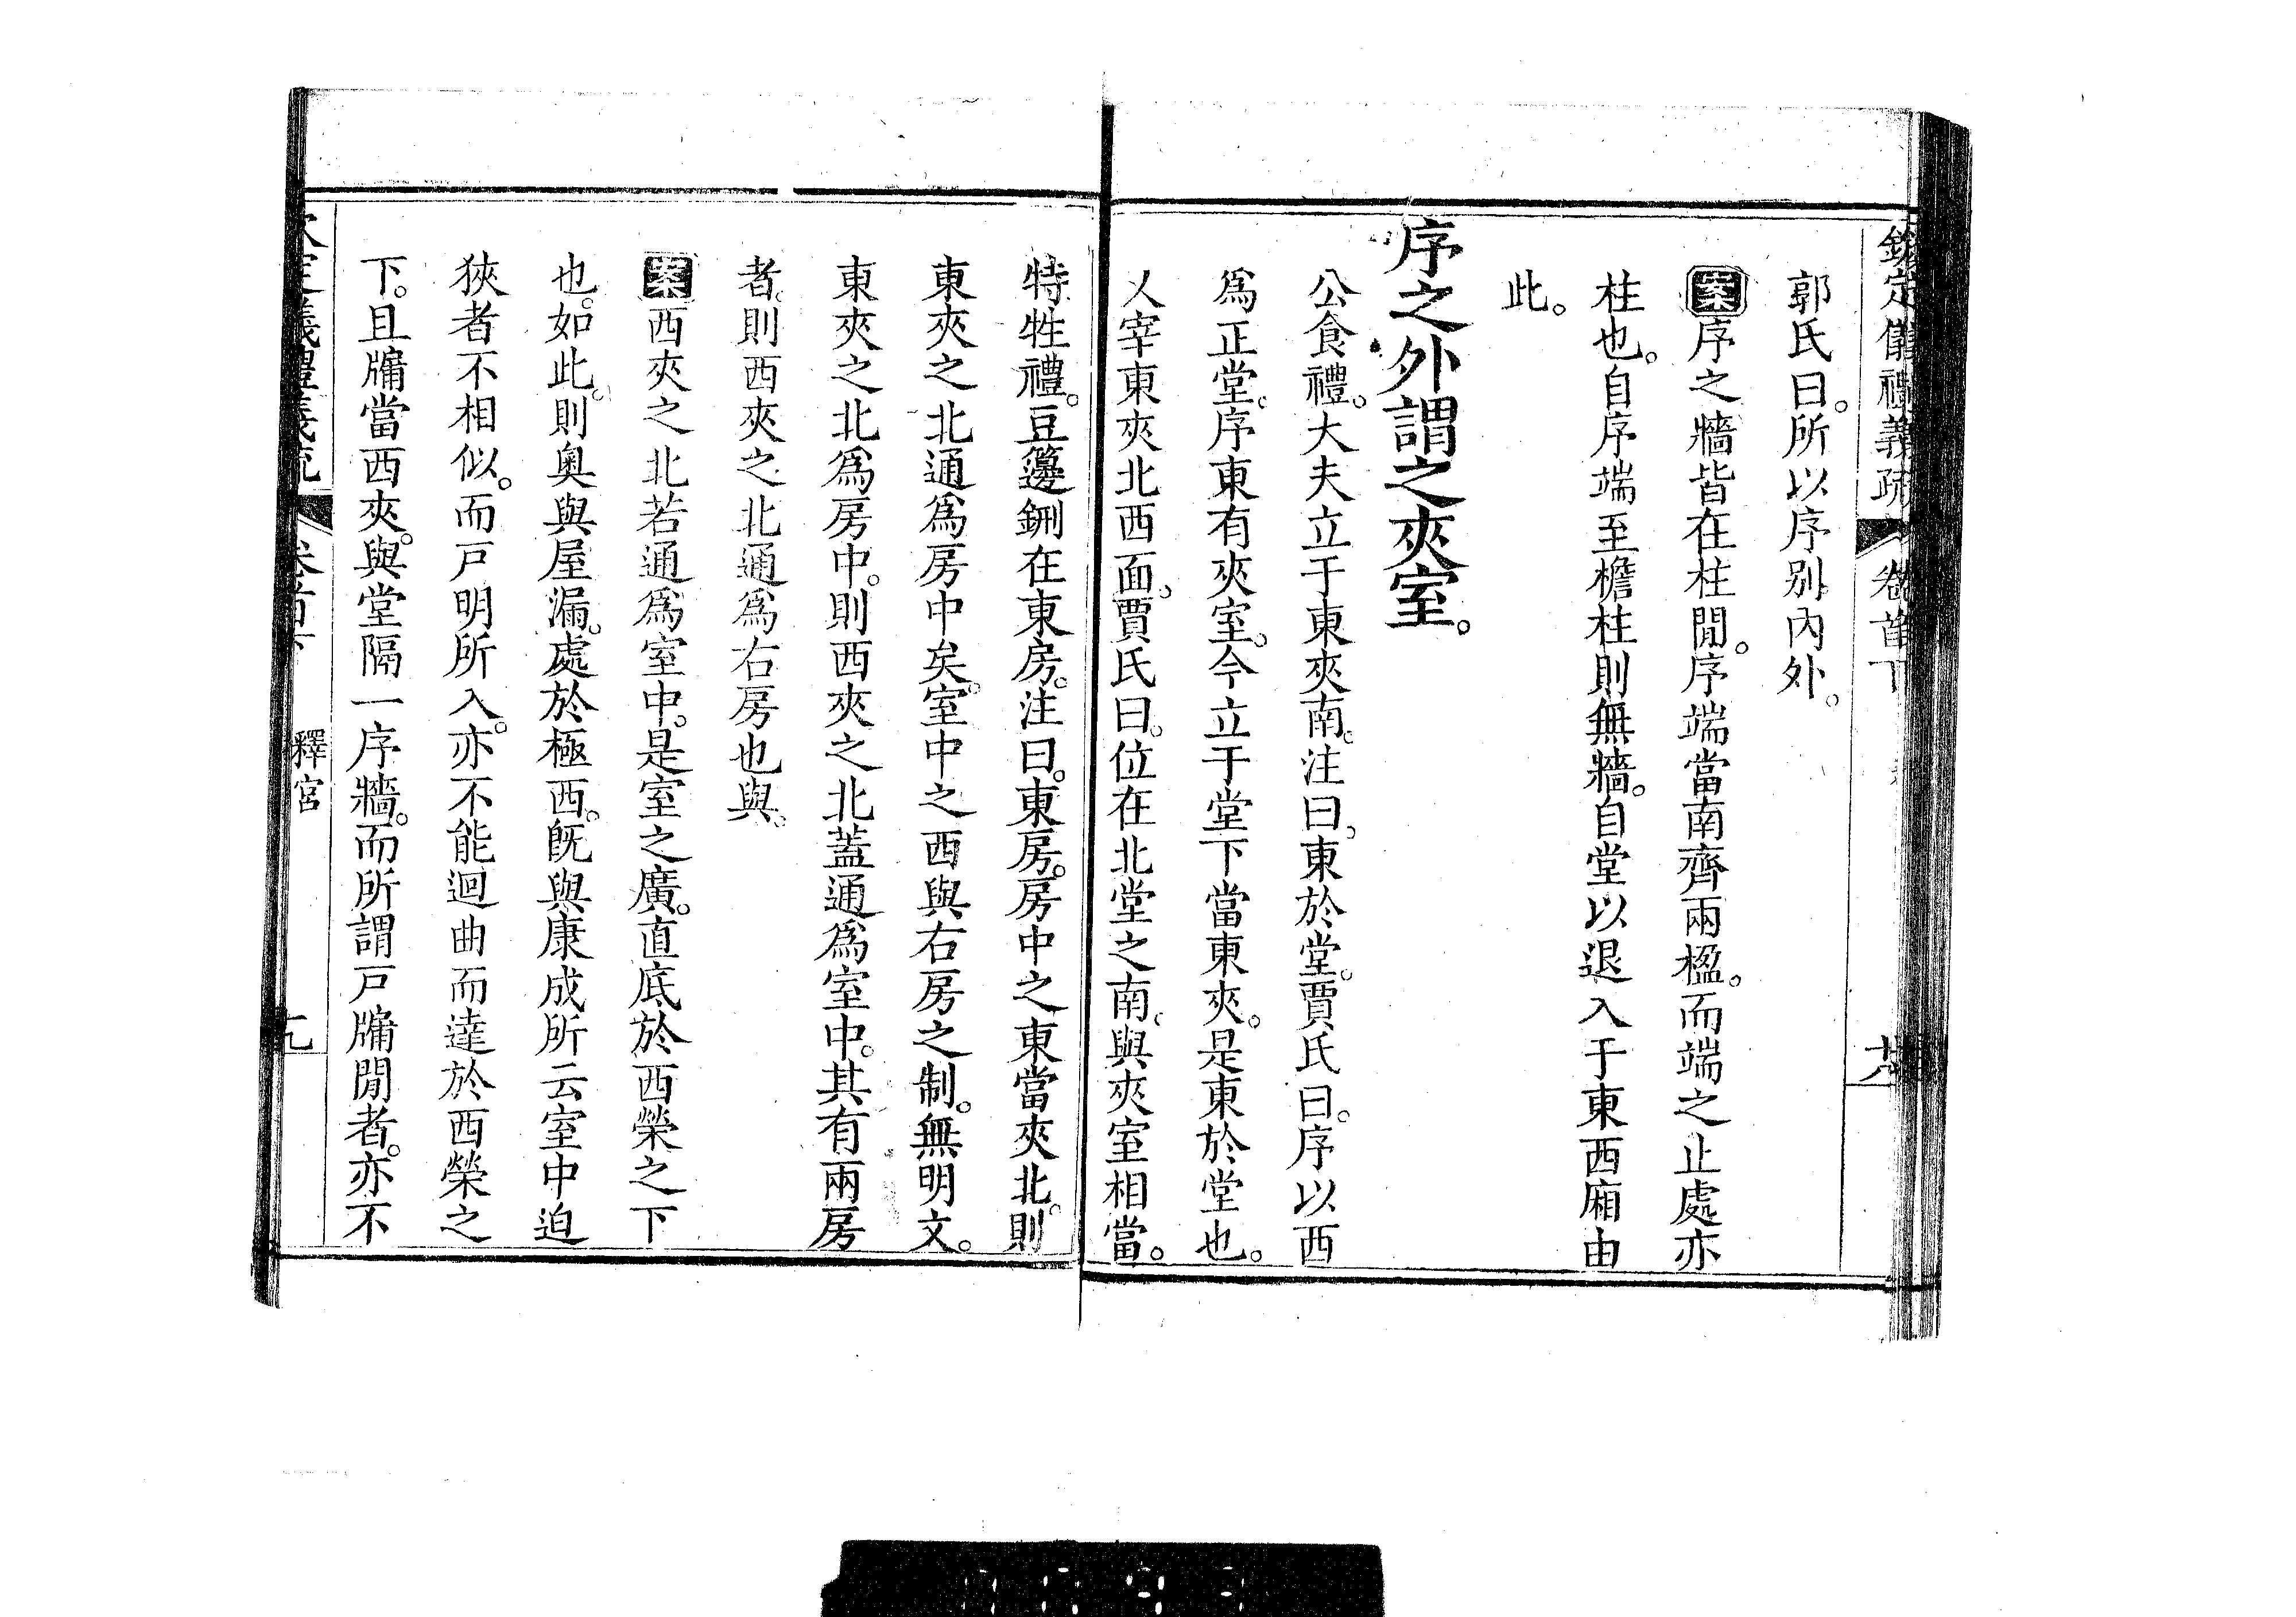 欽定儀禮義疏 卷首下
郭氏曰。所以序別內外。
案序之牆皆在柱閒。序端當南齊兩楹。而端之止處亦
柱也。自序端至檐柱則無牆。自堂以退入于東西廂由
此。
序之外謂之夾室。
公食禮。大夫立于東夾南。注曰。東於堂。賈氏曰。序以西
爲正堂。序東有夾室。今立于堂下當東夾。是東於堂也。
乂宰東夾北西面。賈氏曰。位在北堂之南。與夾室相當。
特牲禮。豆籩鉶在東房。注曰。東房。房中之東當夾北。則
東夾之北通爲房中矣。室中之西與右房之制。無明文。
東夾之北爲房中。則西夾之北蓋通爲室中。其有兩房
者。則西夾之北通爲右房也與。
案西夾之北若通爲室中。是室之廣。直底於西榮之下
也。如此。則奧與屋漏。處於極西。旣與康成所云室中迫
狹者不相似。而戸明所入。亦不能迴曲而達於西榮之
下。且牖當西夾。與堂隔一序牆。而所謂戸牖閒者。亦不
欽定儀禮義疏 卷首下 釋宮